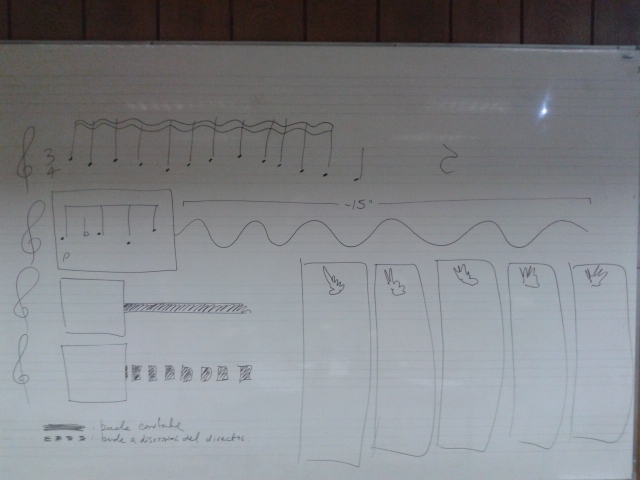 3
4
-15"-
b
p
: bucle constante
: bucle a discreción del director.